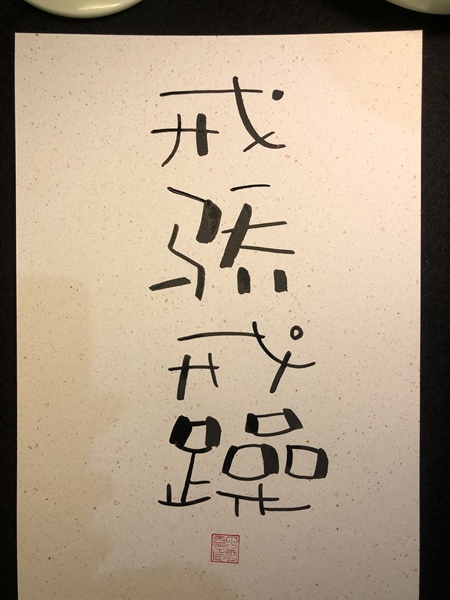 戒
骄
戒
躁